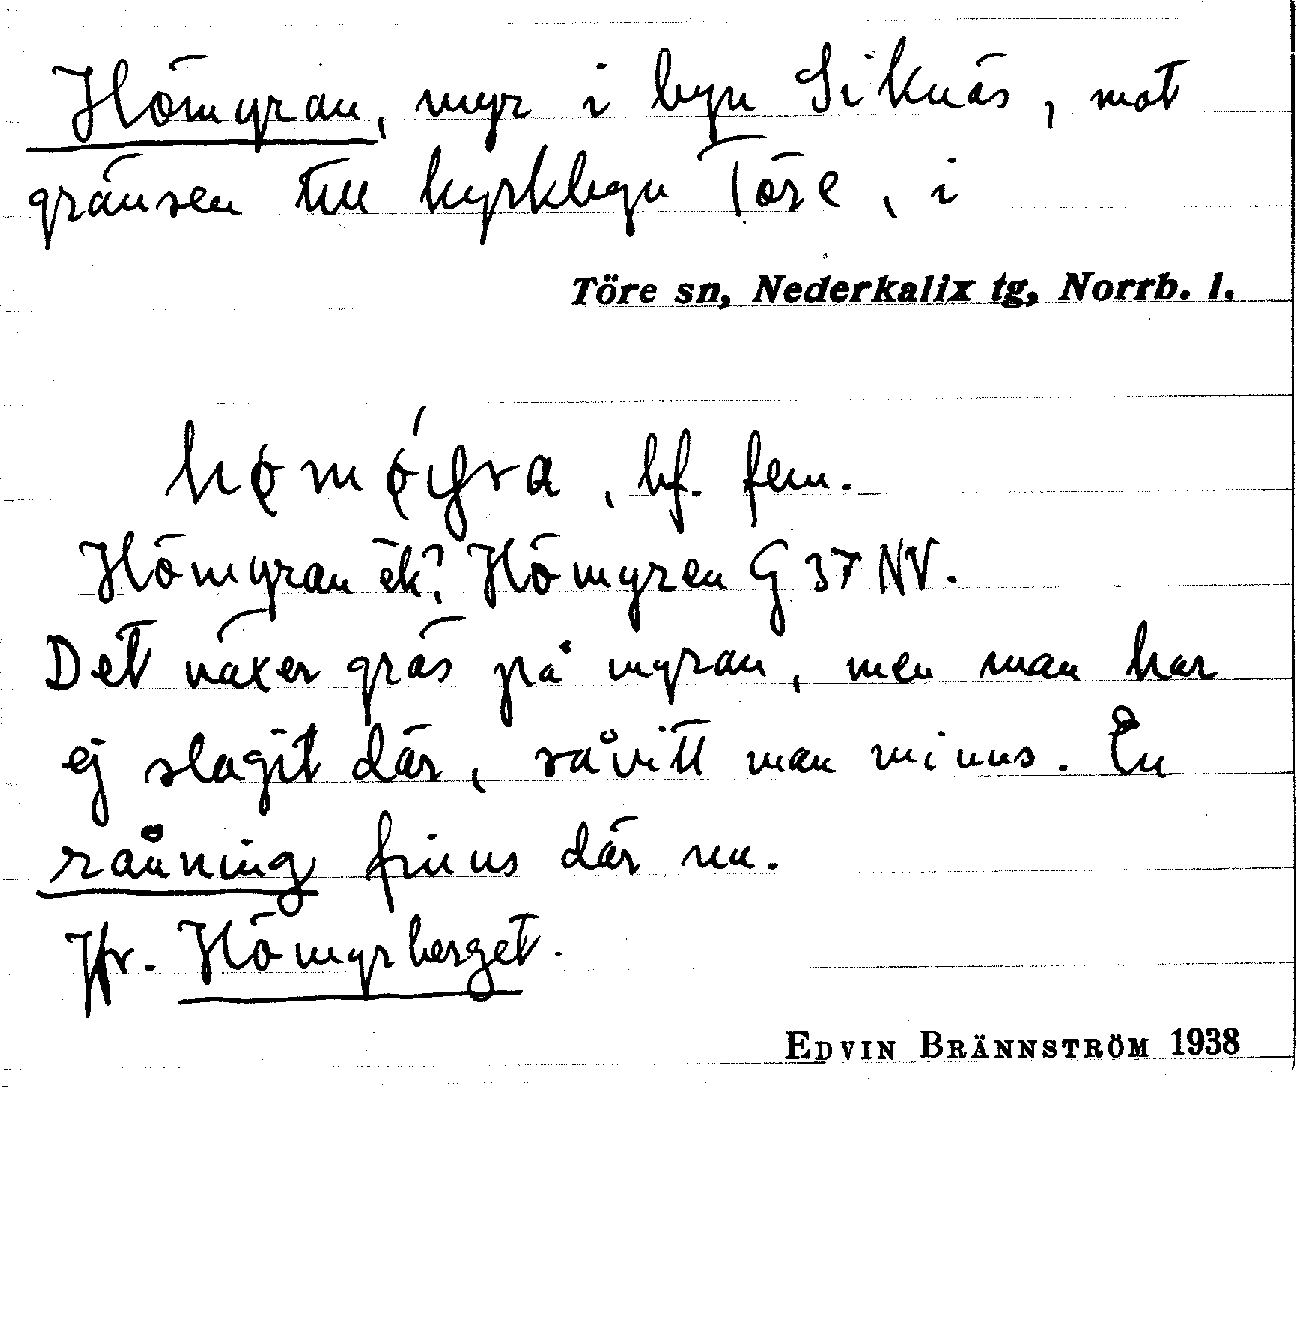 Hömyran, myr i byn Siknäs, mot
gränsen till kyrkbyn Töre, i
Töre sn, Nederkalix tg, Norrb. l.
, bf. fem.
Hömyran ek? Hömyren G 37 NV.
Det växer gräs på myran, men man har
ej slagit där, såvitt man minns. En
råning finns där nu.
Jfr. Hömyrberget.
EDVIN BRÄNNSTRÖM 1938